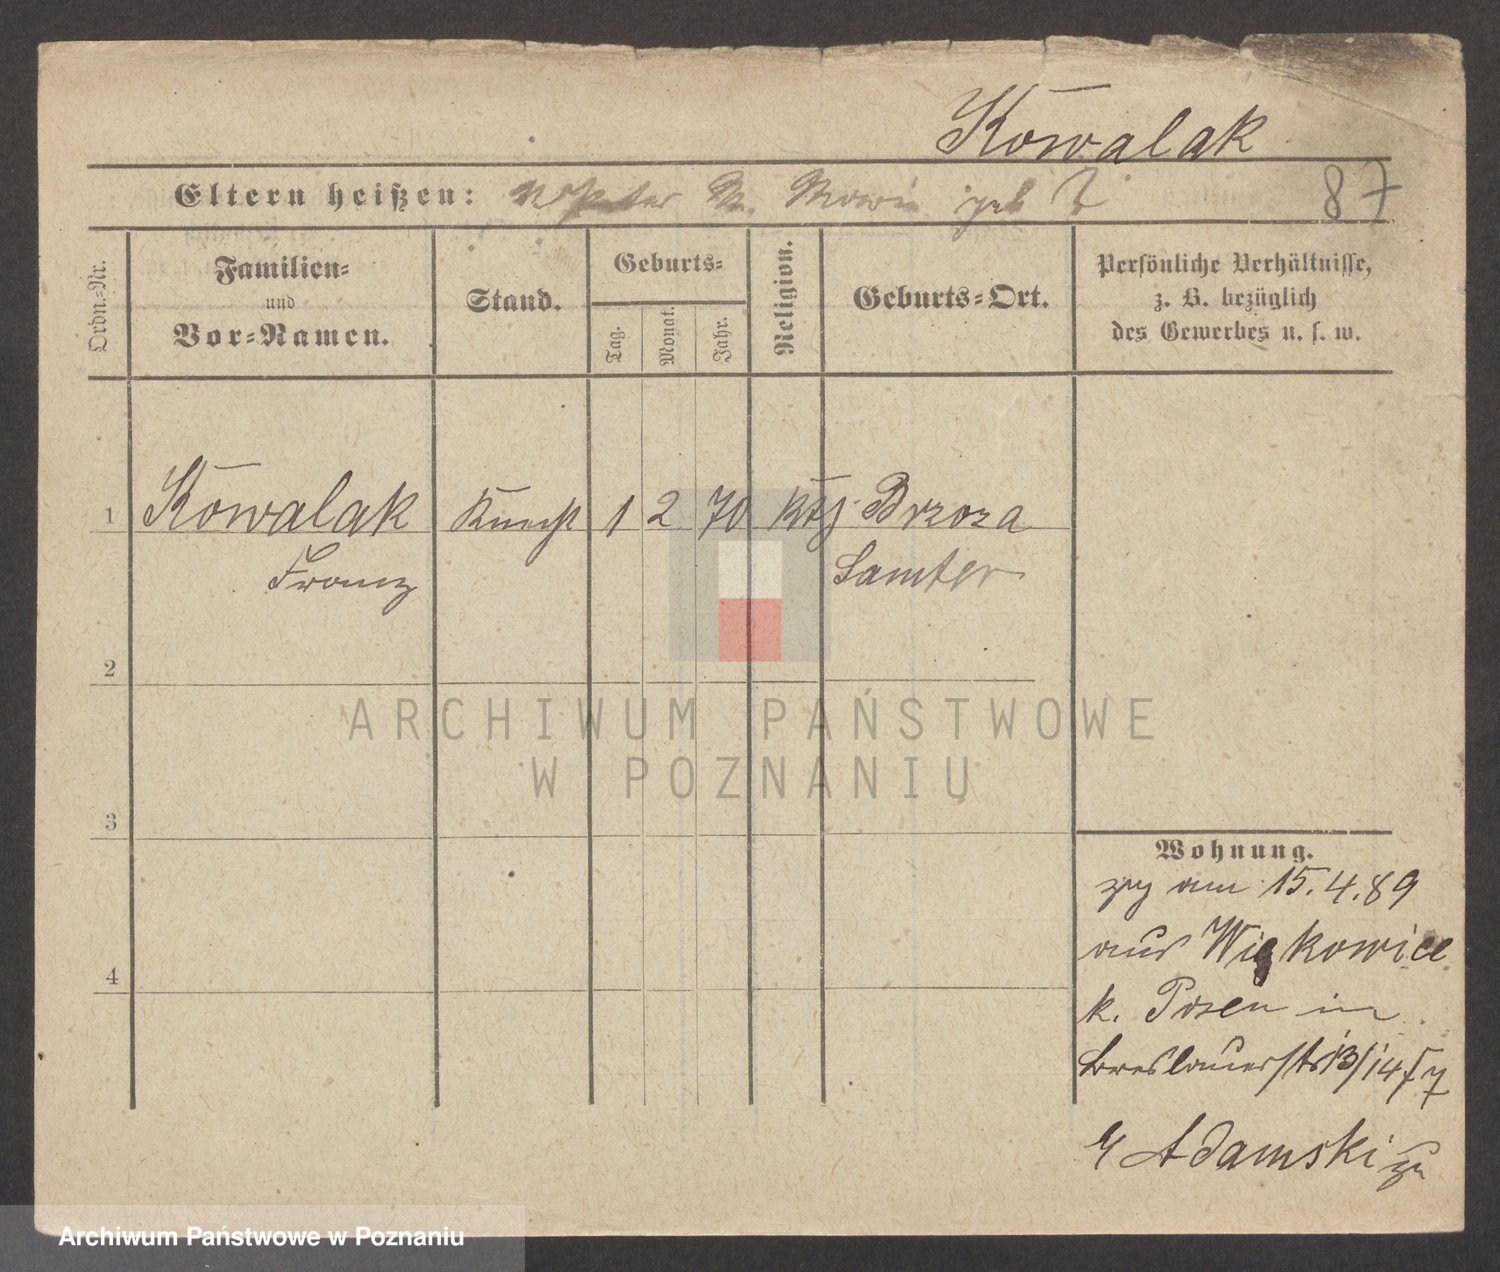 Kowalak
Eltern heißen: Marie geb 87
Ordn.-Nr.
Familien-
und
Vor-Namen.
Stand.
Geburts-
Tag.
Monat.
Jahr.
Religion.
Geburts-Ort.
Persönliche Verhältnisse,
z. B. bezüglich
des Gewerbes u. s. w.
1 Kowalak Knecht 1 2 70 kth Brzoza
Franz Samter
2
3
4
ARCHIWUM PAŃSTWOWE
W POZNANIU
Wohnung.
zg am 15.4.89
aus Więkowice
k. Posen in
Breslauerstr 13/14
Adamski
Archiwum Państwowe w Poznaniu